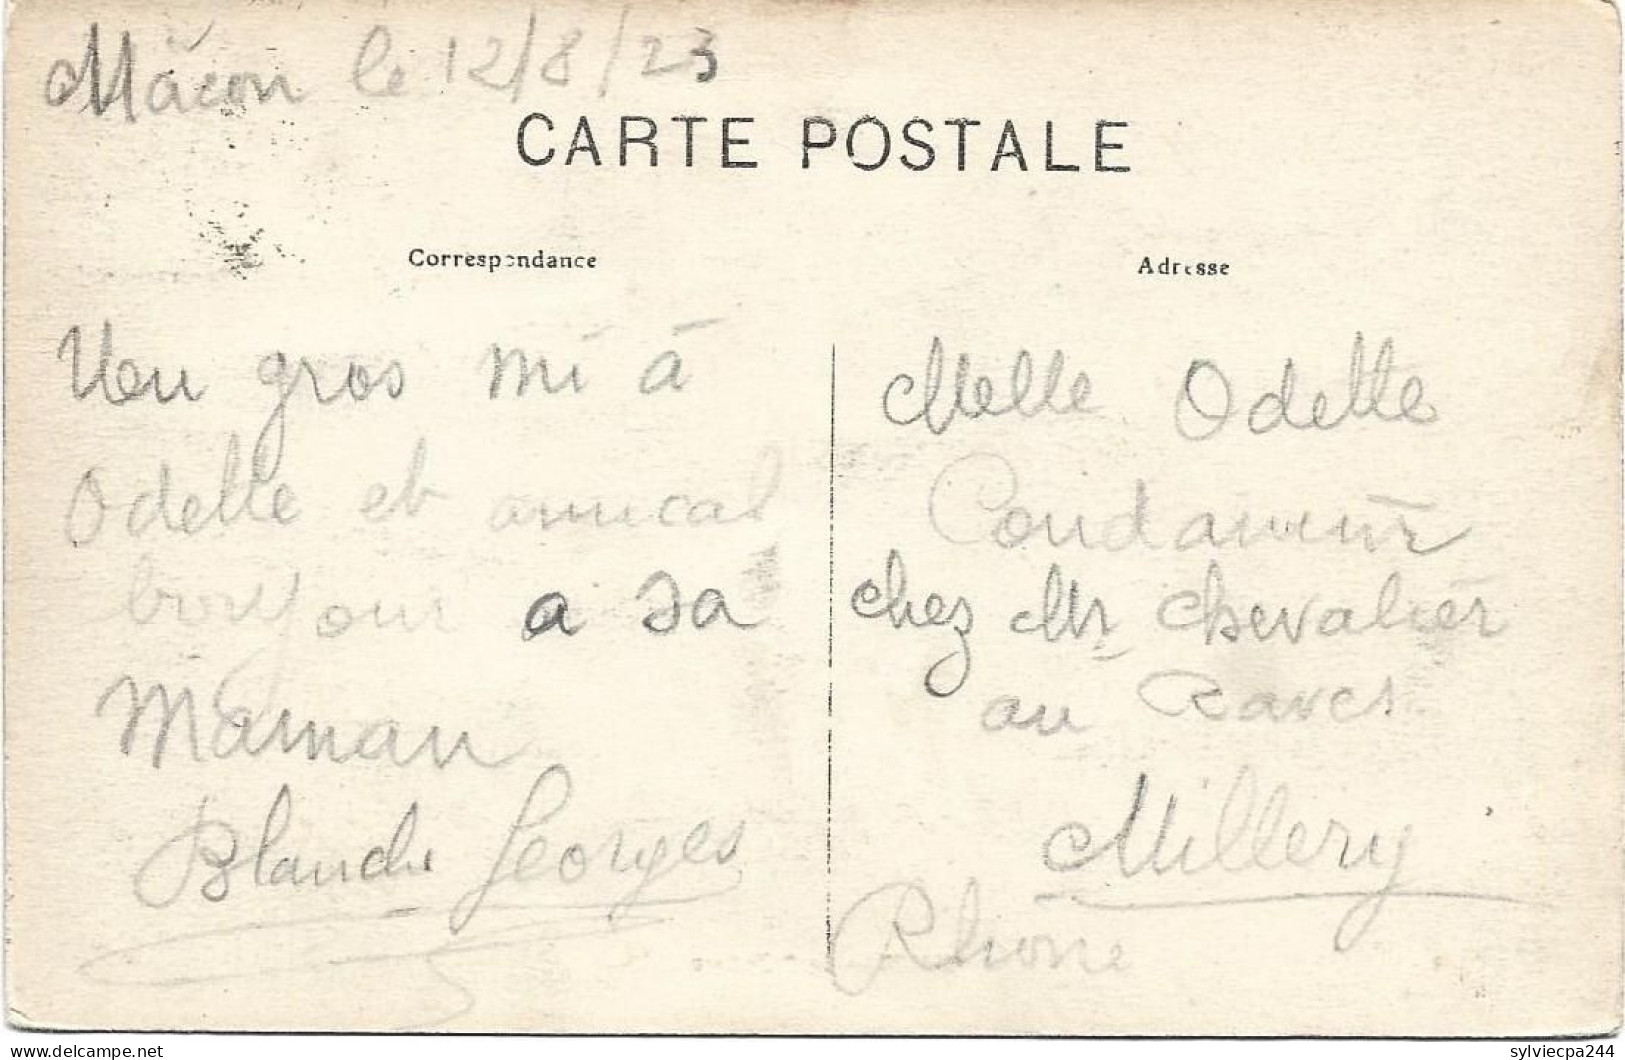 Mâcon le 12/8/23
CARTE POSTALE
Correspondance
Adresse
Un gros mi à
Odette et amical
bonjour a sa
Maman
Blanche Georges
Melle Odette
chez Mr Chevalier
au
Millery
Rhone
delcampe.net
sylviecpa244